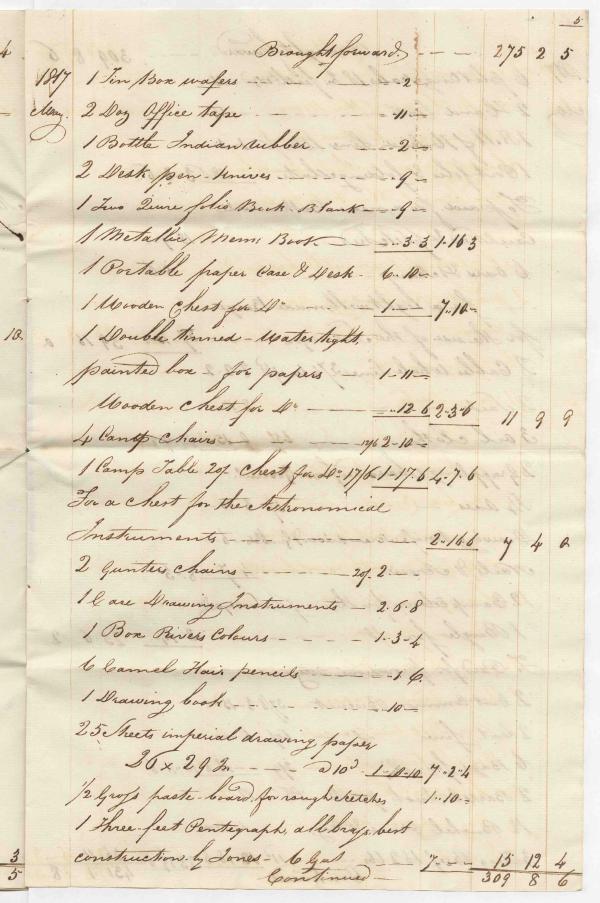 5
Brought forward - - - 275 2 5
1817 1 Tin Box wafers - - - " 2 "
May. 2 Doz Office tape - - - " 11 "
1 Bottle Indian rubber - - " 2 "
2 Desk pen-knives - - - " 9 "
1 Two Quire folio Book Blank - - " 9 "
1 Metallic Mem: Book - " 3 . 3 1 . 16 . 3
1 Portable paper Case & Desk - 6 . 10 "
1 Wooden Chest for Do - - - 1 . - - 7 . 10 -
1 Double tinned - Water tight,
painted box for papers - 1 - 11 -
Wooden Chest for Do - - " 12 . 6 2 . 3 . 6 11 9 9
4 Camp Chairs 12/6 2 - 10 -
1 Camp Table 20/ Chest for Do 17/6 - 1 - 17 . 6 4 . 7 . 6
For a chest for the Astronomical
Instruments - - - 2 . 16 . 6 7 4 0
2 Gunter Chains - - - 20/. 2 . - -
1 Case Drawing Instruments - 2 . 6 . 8
1 Box Rivers Colours - - - 1 . 3 - 4
6 Camel Hair pencils - - - 1 . 6
1 Drawing book - - - " 10 -
25 Sheets imperial drawing paper
36 x 29 In - - @ 10d 1 - 0 - 10 7 . 2 . 4
1/2 Gross paste-board for rough sketches 1 . 10 -
1 Three-feet Pentegraph, all brass, best
construction by Jones - 6 Gs 7 - - - 15 12 4
Continued - 309 8 6
4
10
3
5